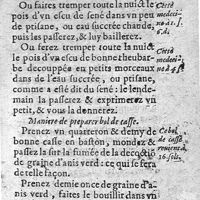 Ou faites tremper toute la nuict le
pois d'vn escu de sené dans vn peu
de ptisane, ou eau succrée chaude,
puis les passerez, & luy baillerez.
Ou ferez tremper toute la nuict le
pois d'vn escu de bonne rheubar-
be decouppée en petits morceaux
dans de l'eau succrée, ou ptisane,
comme a esté dit du sené: le lende-
main la passerez & exprimerez vn
petit, & vous la donnerez.
Maniere de preparer bol de casse.
Prenez vn quarteron & demy de
bonne casse en baston, mondez &
passez la sur la fumée de la decoctiō
de graine d'anis verd: ce qui se fera
de telle façon.
Prenez demie once de graine d'a-
nis verd, faites le bouillir dans vn
Ceste
medeci-
Ceste
medeci-
Ce bol
de casse
reuient à
16. sols.